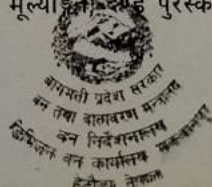 मूल्याङ्कन
पुरस्क
बागमती प्रदेश सरकार
वन तथा वातावरण मन्त्रालय
वन निर्देशनालय
डिभिजन वन कार्यालय मकवानपुर
हेटौंडा नेपाल